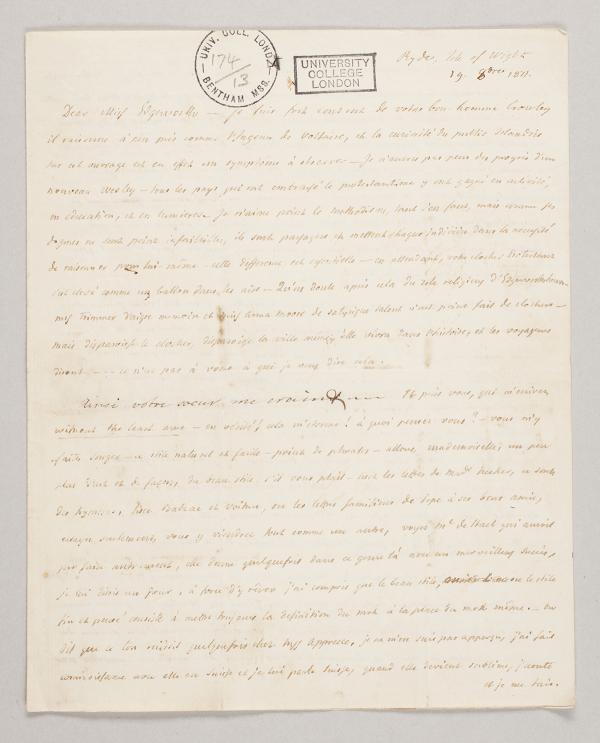 UNIV. COLL. LOND.
BENTHAM MSS.
174
13
UNIVERSITY
COLLEGE
LONDON
Ryde, Isle of Wight
19. 8bre 1811.
Dear Miss Edgeworth — je suis fort content de votre bon homme
il raisonne à peu près comme de Voltaire, et la curiosité du public Irlandois
sur cet ouvrage est en effet un symptôme à observer — Je n'aurois pas peur des progrès d'un
nouveau Wesley — tous les pays qui ont embrassé le protestantisme y ont gagné en activité,
en éducation, et en lumières. Je n'aime point le méthodisme, tant s'en faut, mais comme ses
dogmes ne sont point infaillibles, ils sont et mettent chaque individu dans la nécessité
de raisonner pour lui-même — cette différence est essentielle — en attendant, votre clocher
s'est élevé comme un ballon dans les airs — Qu'on doute après cela du zèle religieux d'Edgeworthstown
miss Trimmer et miss Anna Moore de talent n'ont point fait de clochers —
mais disparoisse le clocher, disparoisse la ville même, elle vivra dans l'histoire, et les voyageurs
diront — ... ce n'est pas à vous à qui je veux dire cela.
Ainsi votre sœur me craint — Et puis vous, qui m'écrivez
without the least awe — en vérité, cela m'étonne! à quoi pensez vous? — vous n'y
faites songer — ce stile naturel et facile — point de phrases — allons, mademoiselle, un peu
plus d'art et de façons, du beau stile, s'il vous plait — lisez les lettres de Made Necker, ce sont
des hymnes, lisez Balzac et Voiture, ou les lettres familières de Pope à ses bons amis,
essayez seulement, vous y viendrez tout comme une autre, voyez Me de Stael qui auroit
pu faire autrement, elle donne quelquefois dans ce genre là avec un merveilleux succès,
je lui disois un jour, à force d'y rêver j'ai compris que le beau stile, ou le stile
fin et pensé consiste à mettre toujours la définition du mot à la place du mot même. — on
dit que ce ton réussit quelquefois chez vous je ne m'en suis pas apperçu, j'ai fait
connoissance avec elle en Suisse et je lui parle Suisse, quand elle devient sublime, j'écoute
et je me tais.